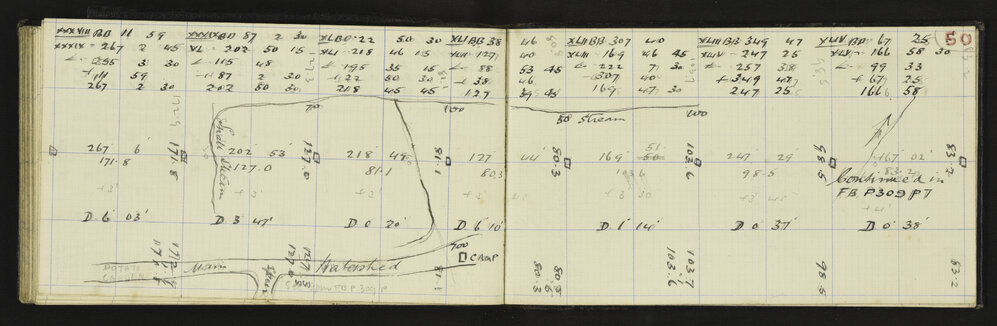 XXXVIII BB 11 59
XXXIX - 267 2 45
L - 255 3 30
+ 11 59
267 2 30
XXXIX BD 87 2 30
XL - 202 50 15
L - 115 48
+ 87 2 30
202 50 30
XL BD - 22 50 30
XLI - 218 46 15
L - 195 35 15
+ 22 50 30
218 45 45
XLI BB 38 46
XLII - 127 40
L - 88 53 45
+ 38 46
127 39 45
XLII BB 307 40
XLIII - 169 46 45
L - 222 7 30
307 40
169 47 30
XLIII BB 349 47
XLIV - 247 25
L - 257 38
+ 349 47
247 25
XLIV BD - 67 25
XLV - 166 58 30
L - 99 33
+ 67 25
166 58
50
70
100
50 Stream
100
Small Stream
267 6'
171.8
171.8
202 53'
127.0
127.0
218 48
81.1
81.1
127 44'
80.3
80.3
169 51
50
103.6
103.6
247 29
98.5
98.5
167 02'
83.2
83.2
Continued in
FB P309 P7
+ 3'
D 6' 03'
D 3 47'
D 0 20'
D 6' 10'
D 1' 14'
D 0 37'
D 0' 38'
POTATO
GARDEN
Main
Spur
Watershed
100
CAMP
172.8
171.8
127.0
81.1
80.3
103.7
103.6
98.5
83.2